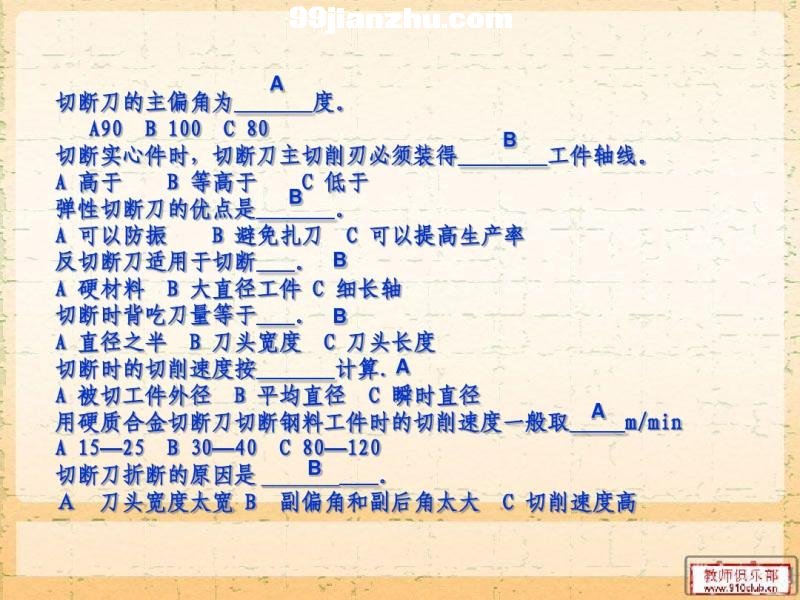 99jianzhu.com
切断刀的主偏角为_______度。 A
A90 B 100 C 80
切断实心件时，切断刀主切削刃必须装得________工件轴线。 B
A 高于 B 等高于 C 低于
弹性切断刀的优点是_______。 B
A 可以防振 B 避免扎刀 C 可以提高生产率
反切断刀适用于切断___. B
A 硬材料 B 大直径工件 C 细长轴
切断时背吃刀量等于___. B
A 直径之半 B 刀头宽度 C 刀头长度
切断时的切削速度按_______计算. A
A 被切工件外径 B 平均直径 C 瞬时直径
用硬质合金切断刀切断钢料工件时的切削速度一般取_____m/min A
A 15—25 B 30—40 C 80—120
切断刀折断的原因是 __________. B
A 刀头宽度太宽 B 副偏角和副后角太大 C 切削速度高
教师俱乐部
www.910club.cn